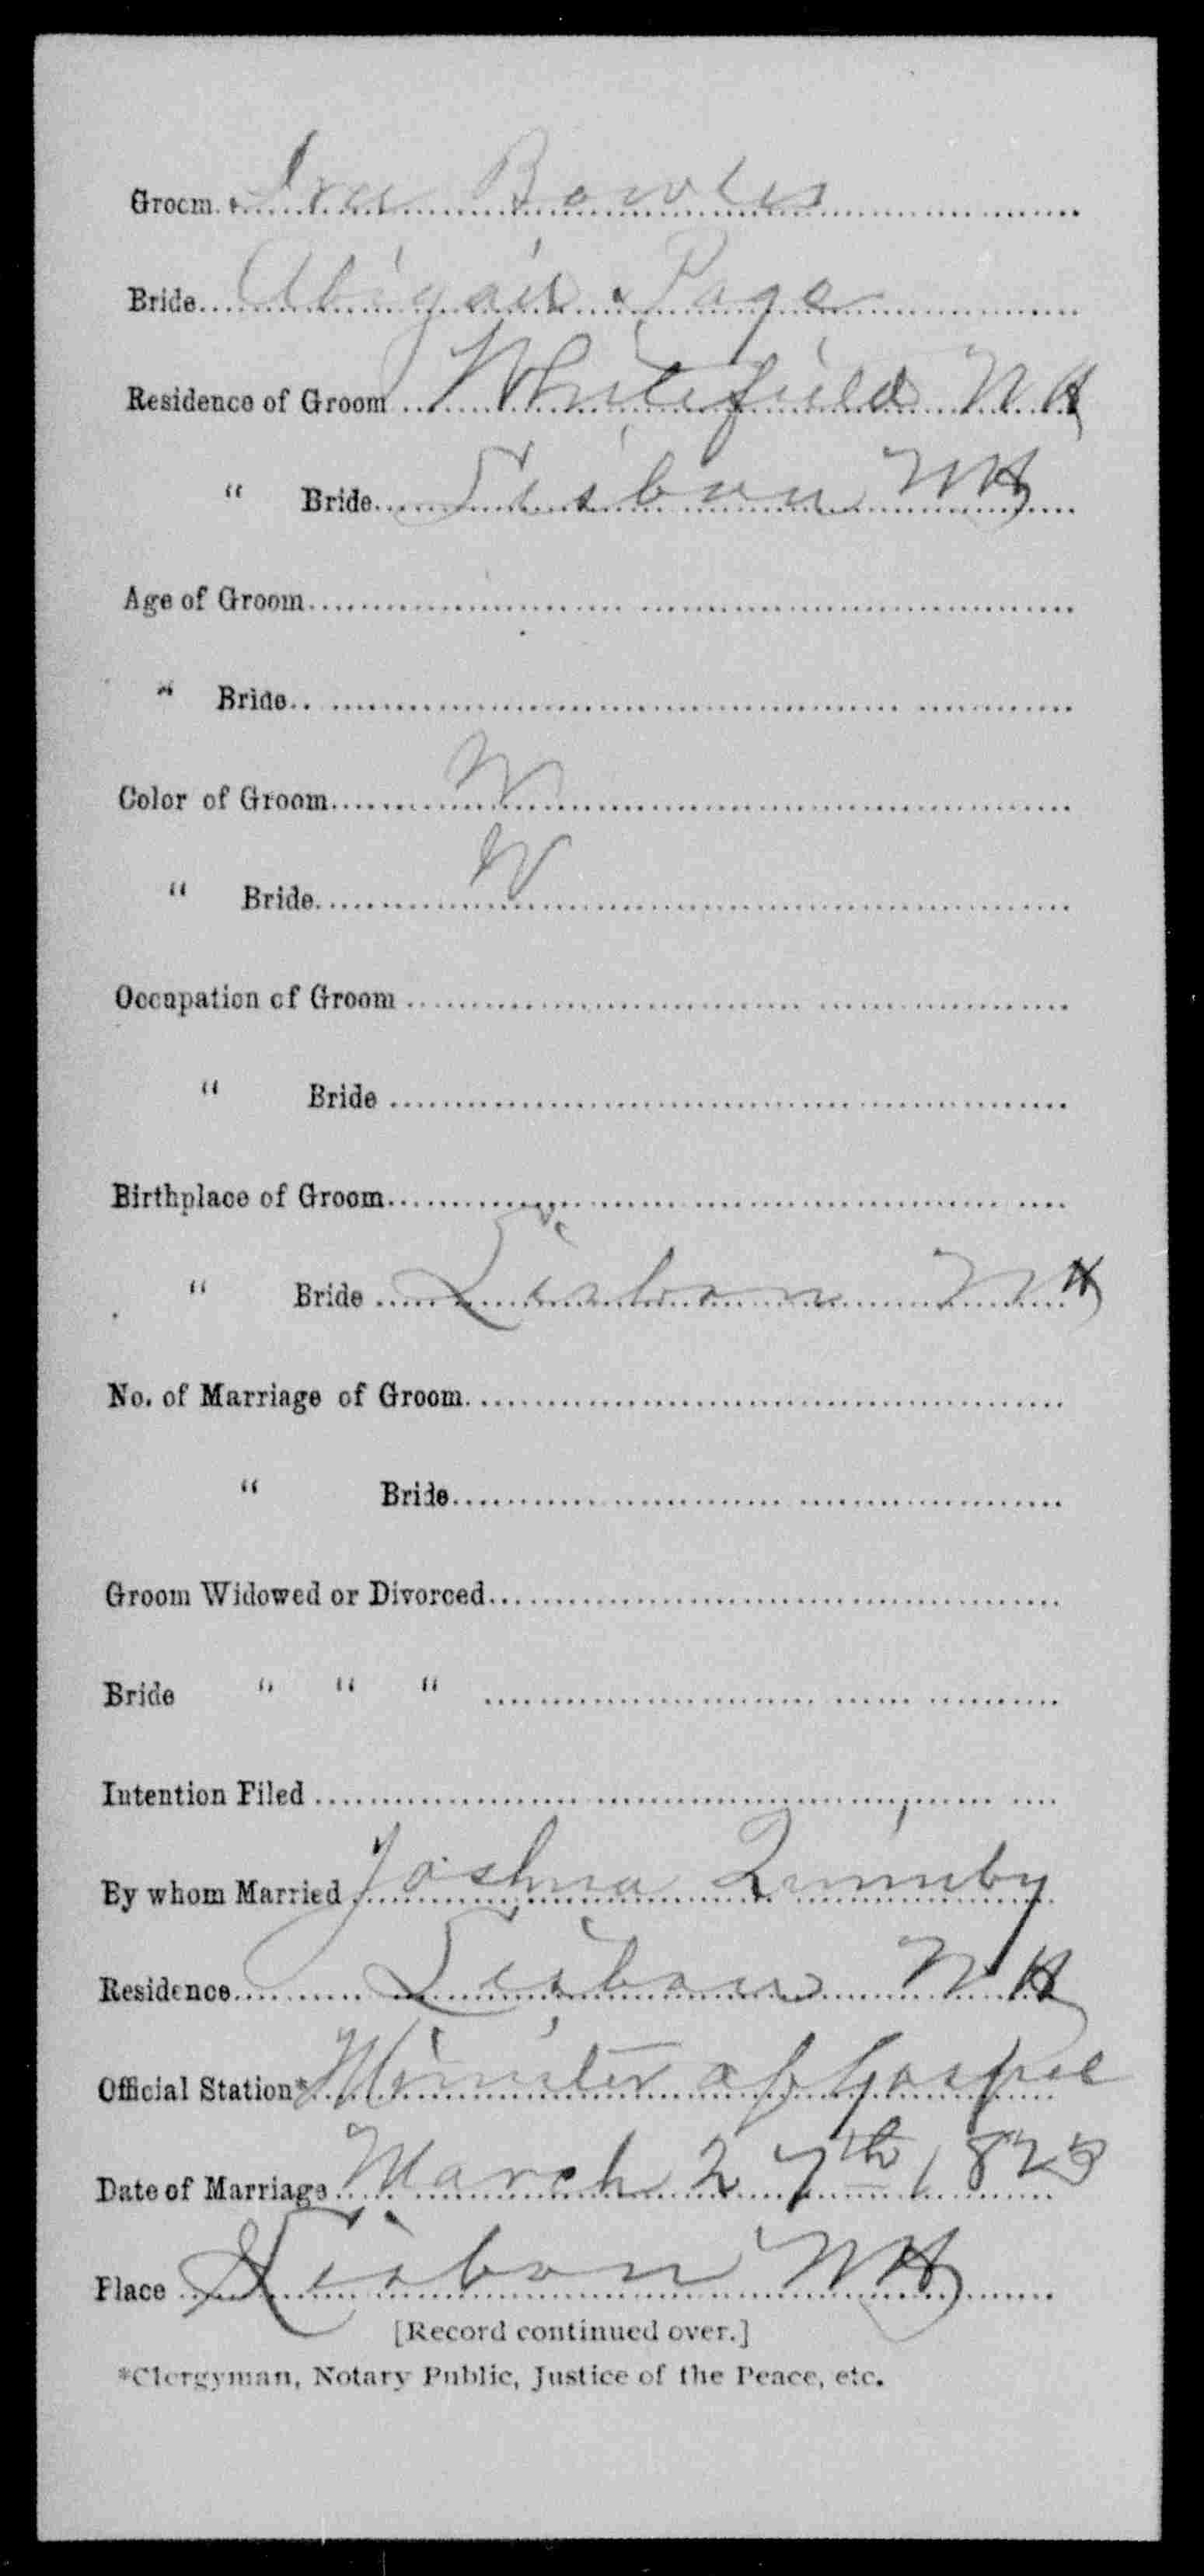 Groom Ira Bowles
Bride Abigail Page
Residence of Groom Whitefield N H
" Bride Lisbon N H
Age of Groom
" Bride
Color of Groom W
" Bride W
Occupation of Groom
" Bride
Birthplace of Groom
" Bride Lisbon N H
No. of Marriage of Groom
" Bride
Groom Widowed or Divorced
Bride " " "
Intention Filed
By whom Married Joshua Quimby
Residence Lisbon N H
Official Station* Minister of Gospel
Date of Marriage March 27th
Place Lisbon N H
[Record continued over.]
*Clergyman, Notary Public, Justice of the Peace, etc.